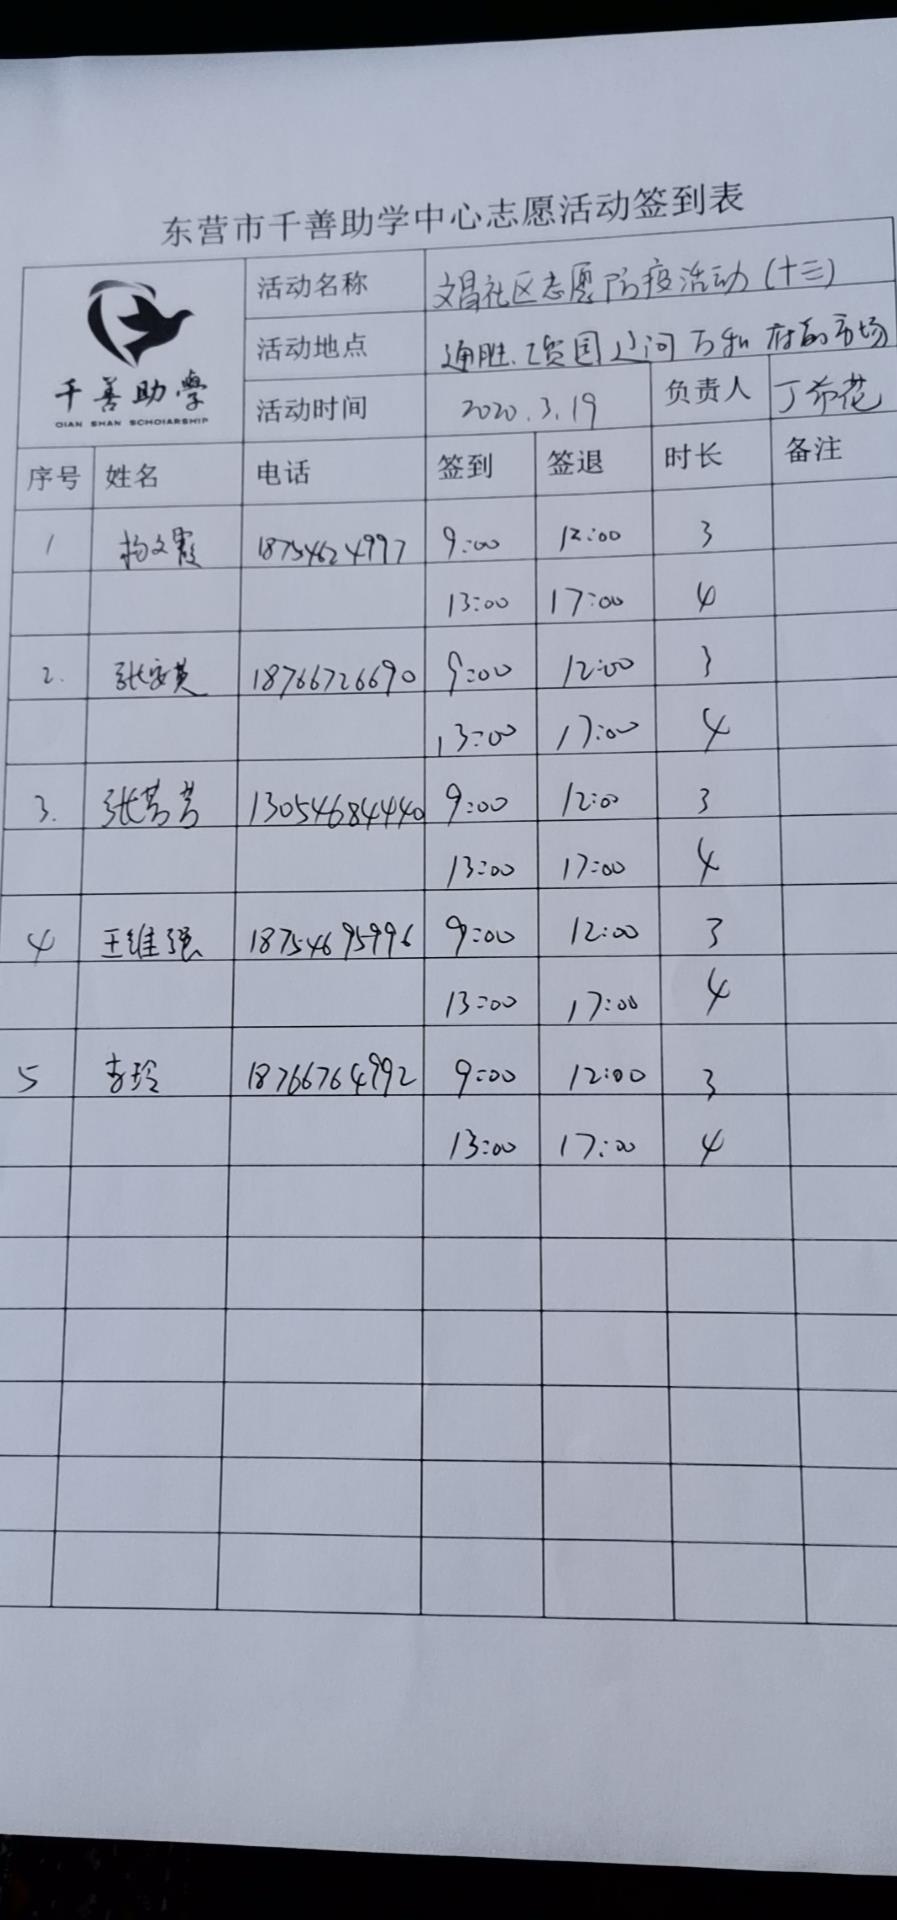 东营市千善助学中心志愿活动签到表
千善助學
QIAN SHAN SCHOLARSHIP
活动名称 文昌社区志愿防疫活动(十三)
活动地点 通胜. 市场
活动时间 2020.3.19 负责人 丁希花
序号 姓名 电话 签到 签退 时长 备注
1 杨文霞 18754624997 9:00 12:00 3
13:00 17:00 4
2. 张安英 18766726690 9:00 12:00 3
13:00 17:00 4
3. 张芳芳 13054684440 9:00 12:00 3
13:00 17:00 4
4 王维强 18754695996 9:00 12:00 3
13:00 17:00 4
5 李玲 18766764992 9:00 12:00 3
13:00 17:00 4